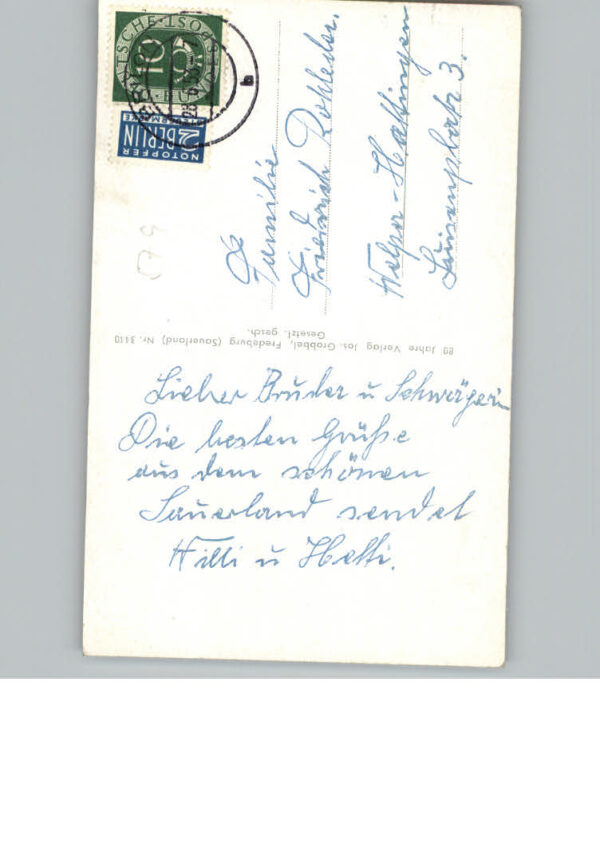 Lieber Bruder u Schwägerin
Die besten Grüße
aus dem schönen
Sauerland sendet
Willi u Hetti.
80 Jahre Verlag Jos. Grobbel, Fredeburg (Sauerland) Nr. 3410
Gesetzl. gesch.
Familie
Friedrich Rohleder.
Welper-Hattingen
DEUTSCHE BUNDESPOST
10
NOTOPFER
2 BERLIN
STEUERMARKE
b